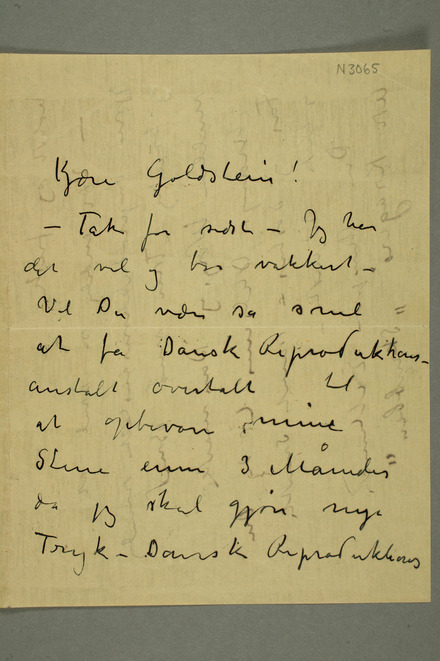 N3065
Kjære Goldstein!
– Tak for sidst – Jeg har
det vel og bor vakkert –
Vil Du være så snil
at få Dansk Reproduktions–
anstalt overtalt til
at opbevare mine
Stene ennu 3 Måneder
da jeg skal gjøre nye
Tryk – Dansk Reproduktions